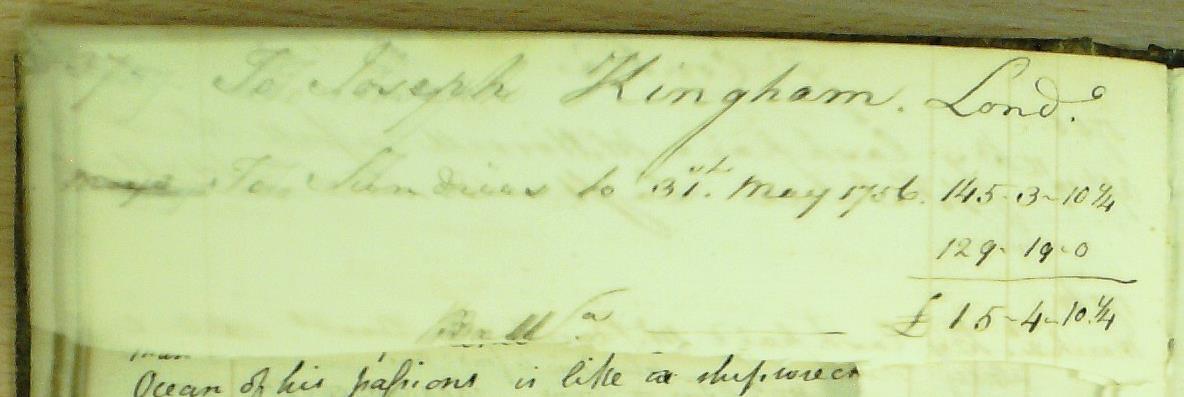 To Joseph Kingham. Lond.º
To Sundries to 31st. May 1756. 145-3-10¼
129-19-0
£ 15-4-10¼
Ocean of his passions is like a shipwreck